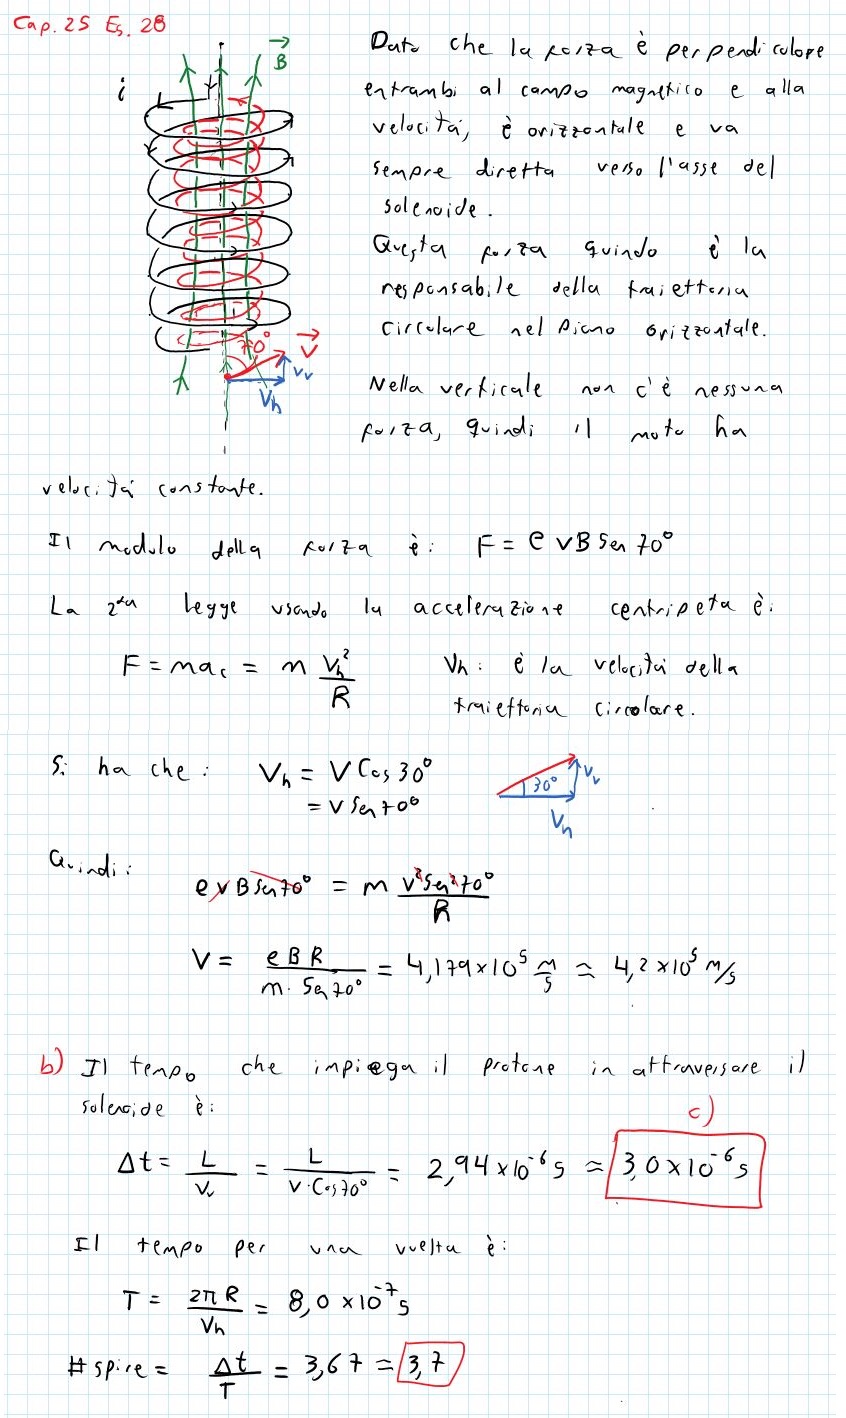 Cap. 25 Es. 28
B
i
70°
V
Vv
Vh
Dato che la forza è perpendicolare
entrambi al campo magnetico e alla
velocità, è orizzontale e va
sempre diretta verso l'asse del
solenoide.
Questa forza quindo è la
responsabile della traiettoria
circolare nel piano orizzontale.
Nella verticale non c'è nessuna
forza, quindi il moto ha
velocità constante.
Il modulo della forza è: F = e v B Sen 70°
La 2da legge usando la accelerazione centripeta è:
F = m ac = m Vh² / R
Vh: è la velocità della
traiettoria circolare.
Si ha che: Vh = V Cos 30°
= V Sen 70°
30°
Vv
Vh
Quindi:
e v B Sen 70° = m V² Sen² 70° / R
V = e B R / m · Sen 70° = 4,179 × 10⁵ m/s ≈ 4,2 × 10⁵ m/s
b) Il tempo che impiega il protone in attraversare il
solenoide è:
c)
Δt = L / Vv = L / V · Cos 70° = 2,94 × 10⁻⁶ s ≈ 3,0 × 10⁻⁶ s
Il tempo per una vuelta è:
T = 2π R / Vh = 8,0 × 10⁻⁷ s
# spire = Δt / T = 3,67 ≈ 3,7